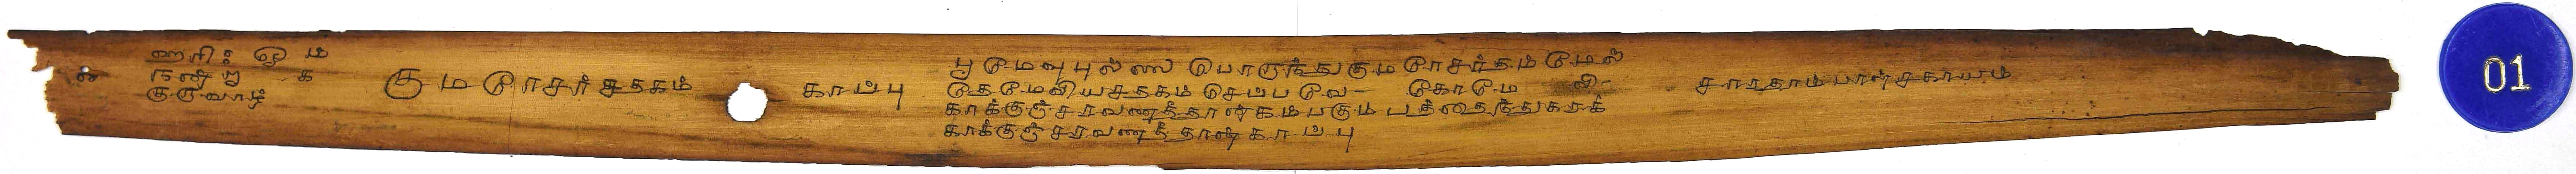 ஹரி: ஓம்
நன்று க
குருவாழ்
குமரேசர் சதகம்
காப்பு
பூமேவு புல்லை பொருந்து குமரேசர்தம் மேல்
தேமேவிய சதகம் செப்பவே கோமே வி
காக்குஞ்சரவணத்தான் கம்பகும பத்தைந்துகரக்
காக்குஞ்சரவணத்தான் காப்பு
சாரதாம்பாள் சகாயம்
01